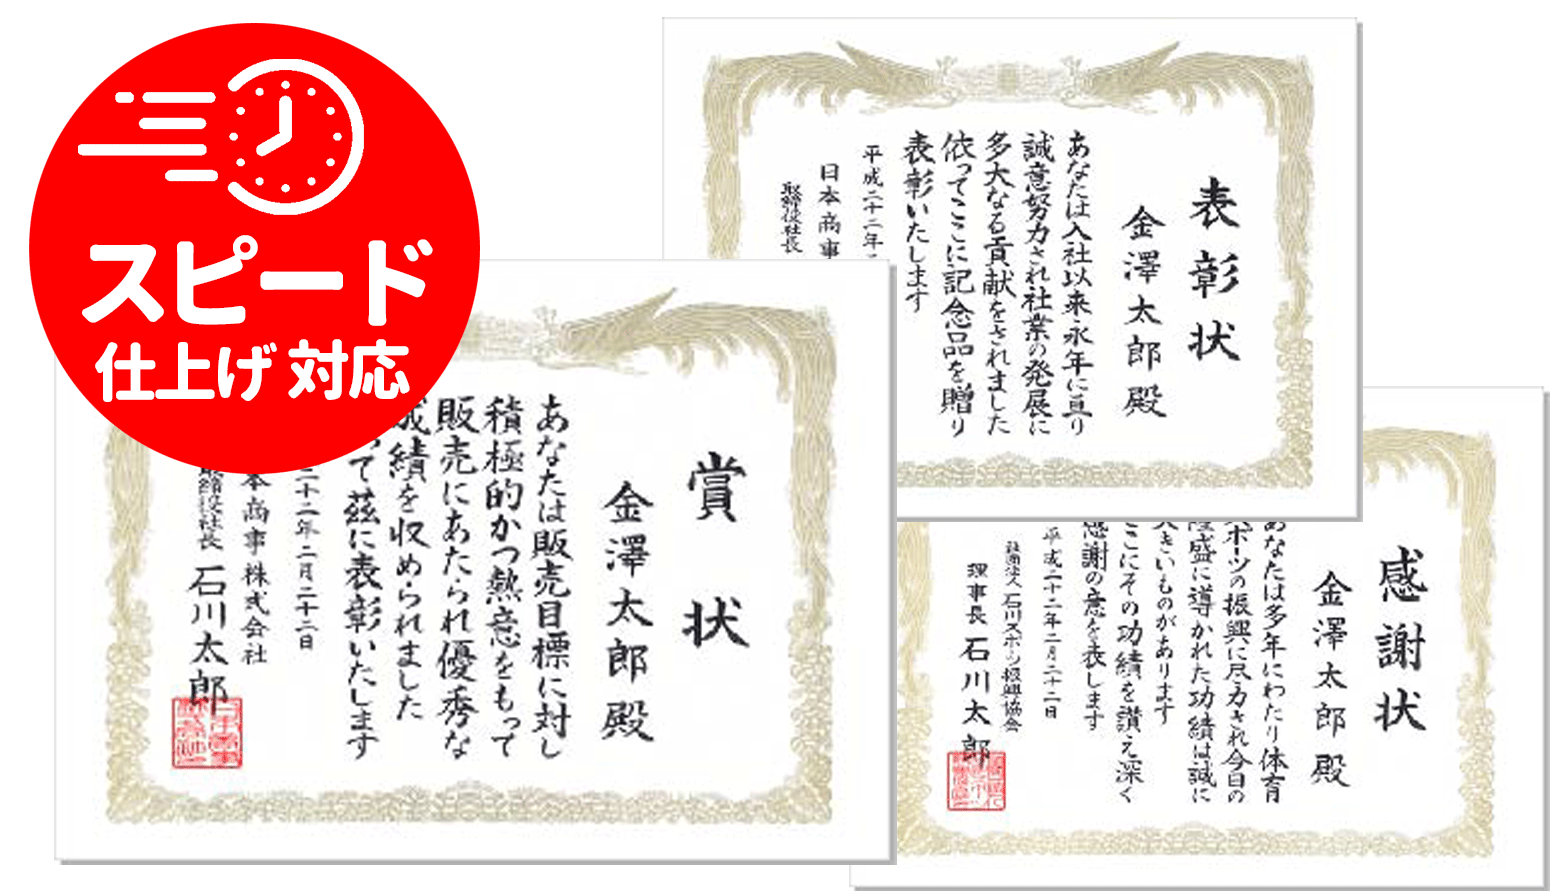 スピード
仕上げ 対応
表彰状
金澤太郎殿
あなたは入社以来永年に亘り
誠意努力され社業の発展に
多大なる貢献をされました
依ってここに記念品を贈り
表彰いたします
平成二十二年
日本商事
取締役社長
賞状
金澤太郎殿
あなたは販売目標に対し
積極的かつ熱意をもって
販売にあたられ優秀な
成績を収められました
って茲に表彰いたします
二十二年二月二十二日
本商事株式会社
取締役社長 石川太郎
感謝状
金澤太郎殿
あなたは多年にわたり体育
ポーツの振興に尽力され今日の
隆盛に導かれた功績は誠に
大きいものがあります
ここにその功績を讃え深く
感謝の意を表します
平成二十二年二月二十二日
社団法人 石川スポーツ振興協会
理事長 石川太郎